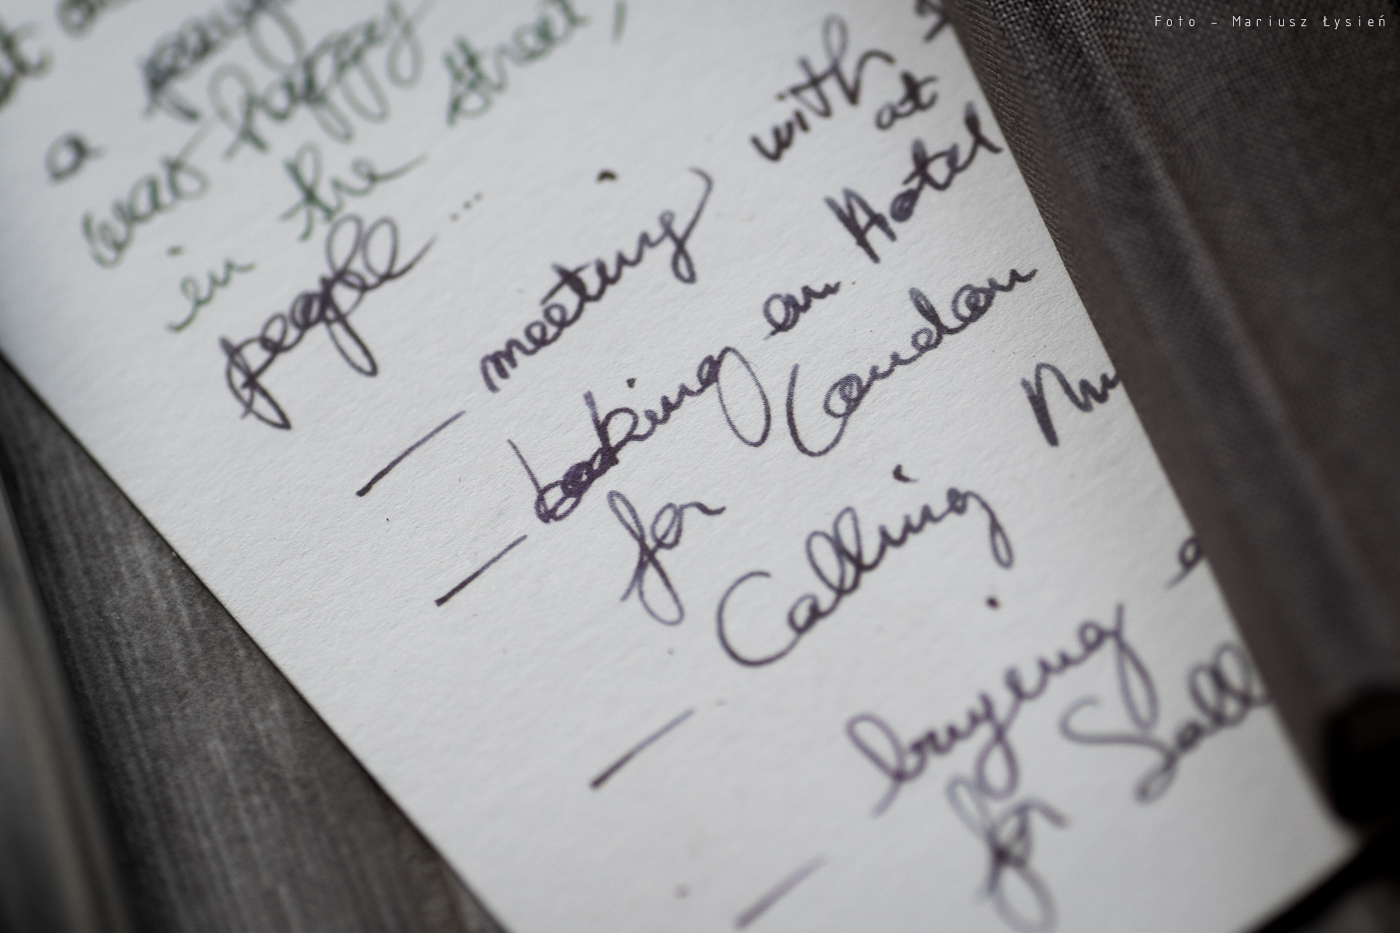 Foto - Mariusz Łysień
a
was happy
in the street,
people...
- meeting with
at
- booking an Hotel
for London
- Calling
- buying
for